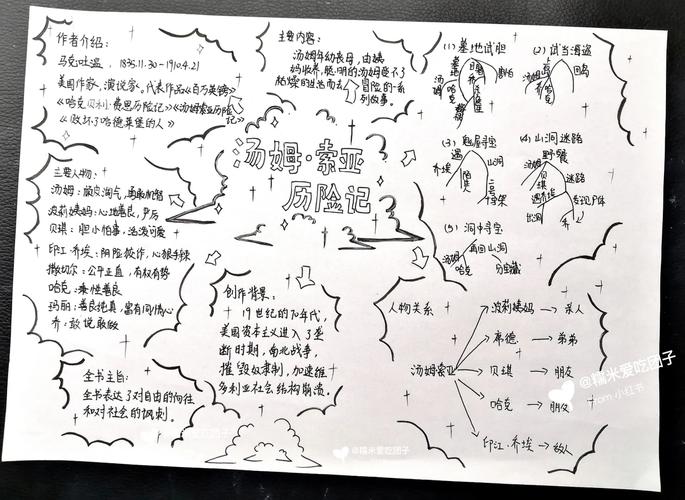 作者介绍:
马克吐温, 1835.11.30-1910.4.21
美国作家、演说家,代表作品《百万英镑》
《哈克贝利·费恩历险记》《汤姆索亚历险记》
《败坏了哈德莱堡的人》
主要内容:
汤姆年幼丧母,由姨
妈收养,聪明的汤姆受不了
枯燥的生活而去冒险的一系
列故事。
(1) 墓地试胆
汤姆
哈克
(2) 试当海盗
汤姆
哈克
(3) 鬼屋寻宝
乔埃
山洞
二号
十字架
(4) 山洞迷路
野餐
汤姆
贝琪
迷路
遇乔埃
出洞
发现尸体
乔
(5) 洞中寻宝
汤姆
哈克
再回山洞
分宝藏
汤姆·索亚
历险记
主要人物:
汤姆:顽皮淘气,勇敢机智
波莉姨妈:心地善良,严厉
贝琪:胆小怕事,活泼可爱
印江·乔埃:阴险狡诈,心狠手辣
撒切尔:公平正直,有权有势
哈克:善良
玛丽:善良纯真,富有同情心
乔:敢说敢做
全书主旨:
全书表达了对自由的向往
和对社会的讽刺。
创作背景:
19世纪的70年代,
美国资本主义进入了垄
断时期,南北战争,
摧毁奴隶制,加速维
多利亚社会结构崩溃。
人物关系
汤姆索亚
波莉姨妈→亲人
席德→弟弟
贝琪→朋友
哈克→朋友
印江·乔埃→敌人
@糯米爱吃团子
from 小红书
@糯米爱吃团子